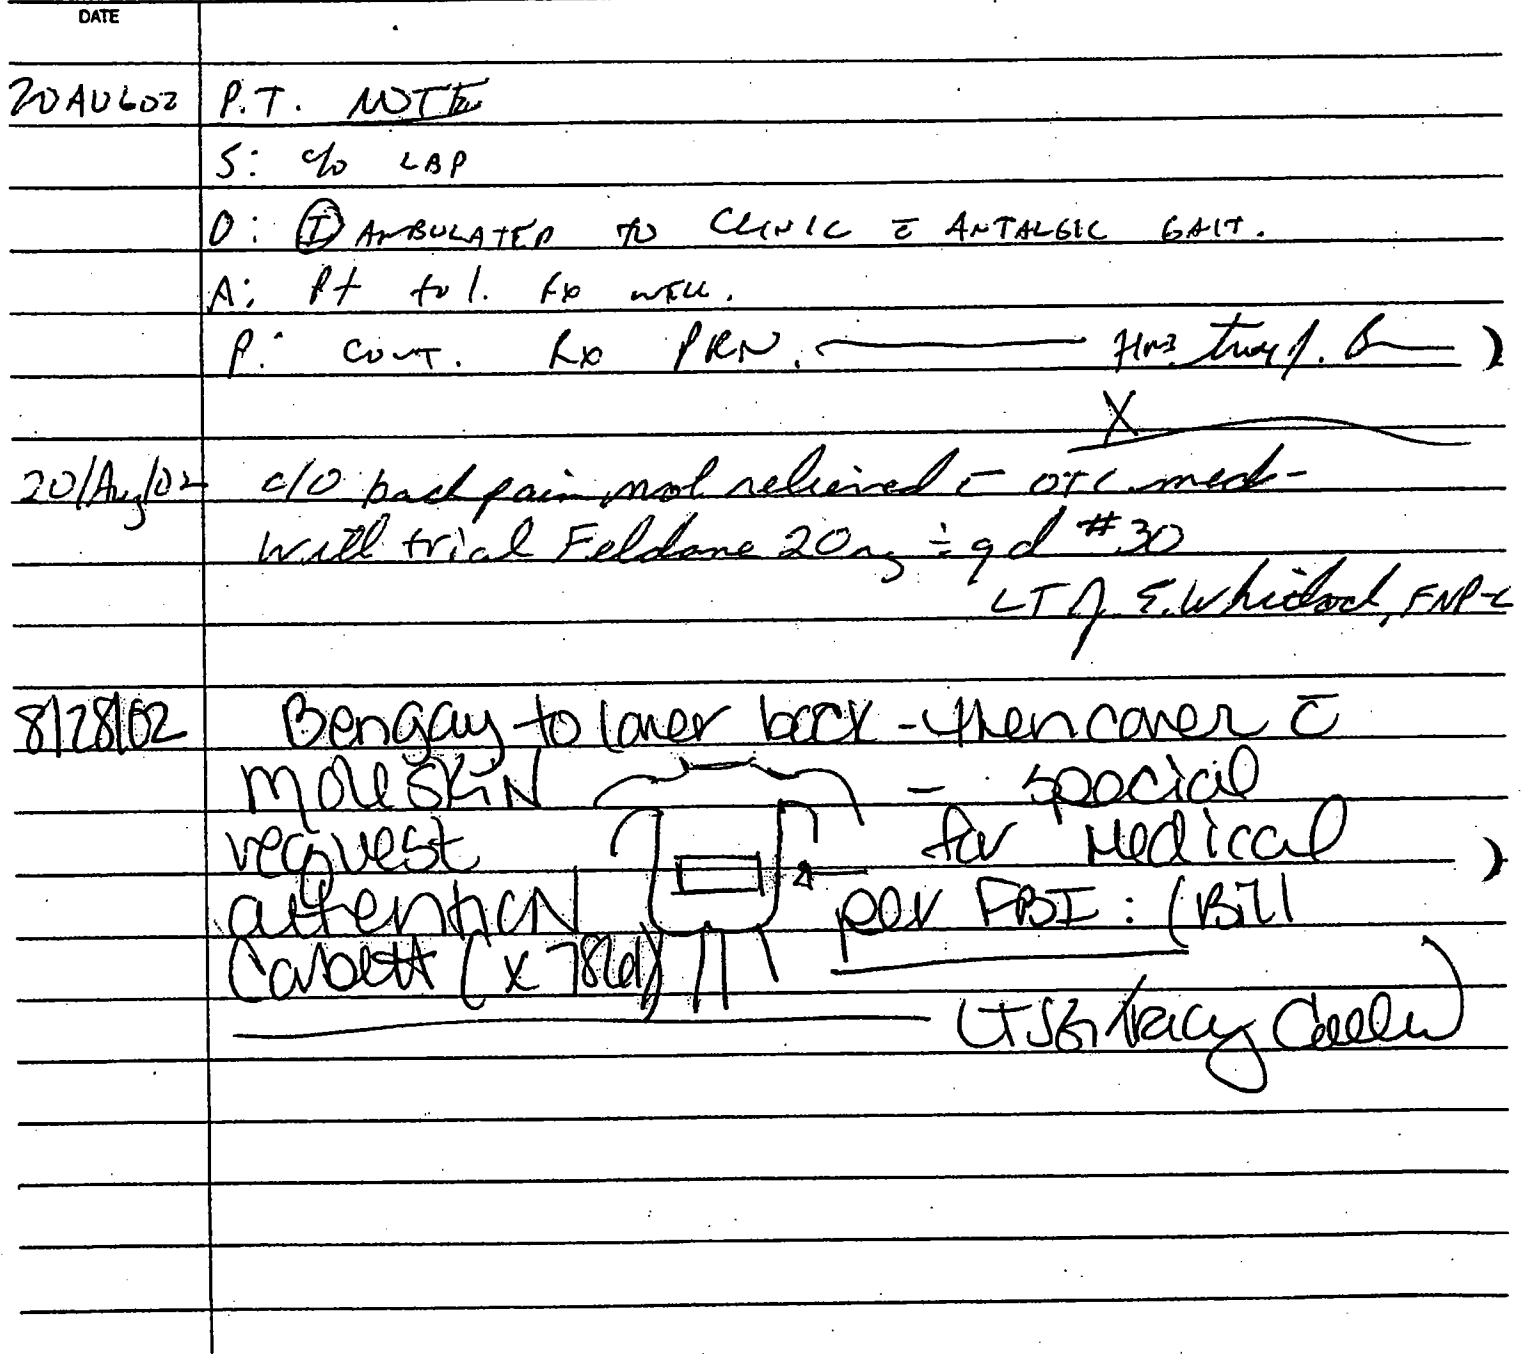 DATE
20AUG02 P.T. NOTE
S: c/o LBP
O: Ⓘ AMBULATED TO CLINIC c̄ ANTALGIC GAIT.
A: Pt tol. Rx WELL.
P: CONT. Rx PRN. HM3
X
20/Aug/02 c/o back pain not relieved c̄ OTC med-
will trial Feldane 20mg ÷ qd #30
LTJG E. Whitlock, FNP-C
8/28/02 Bengay to lower back - then cover c̄
moleskin - special
request for Medical
attention per FBI: (Bill
Corbett (x 7861)
LTJG Tracy